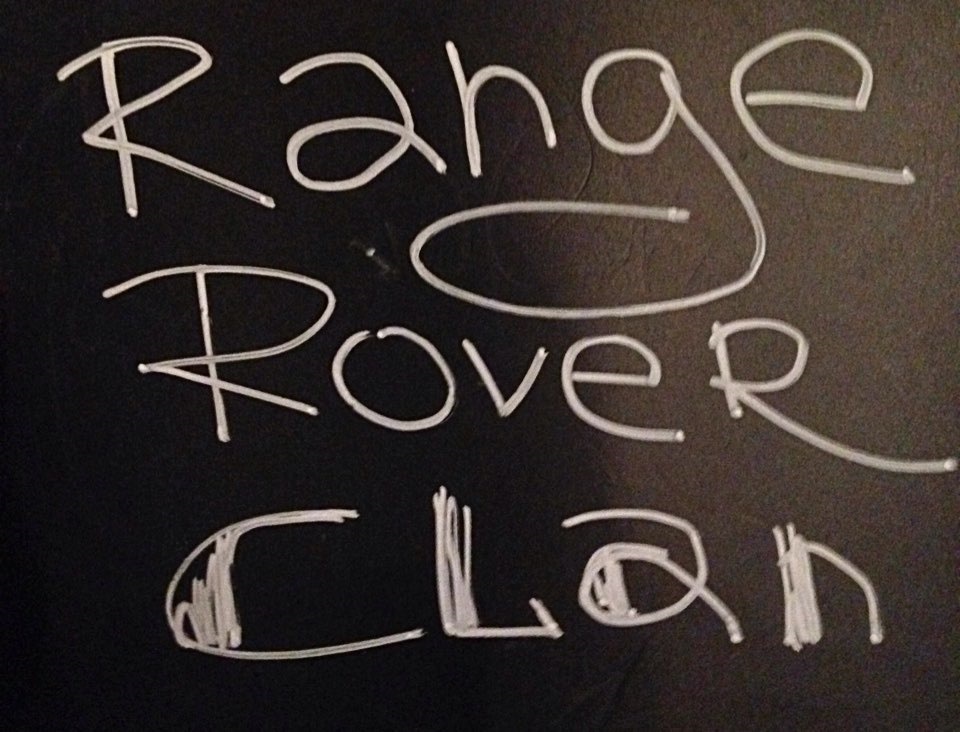 Range
RoveR
CLan